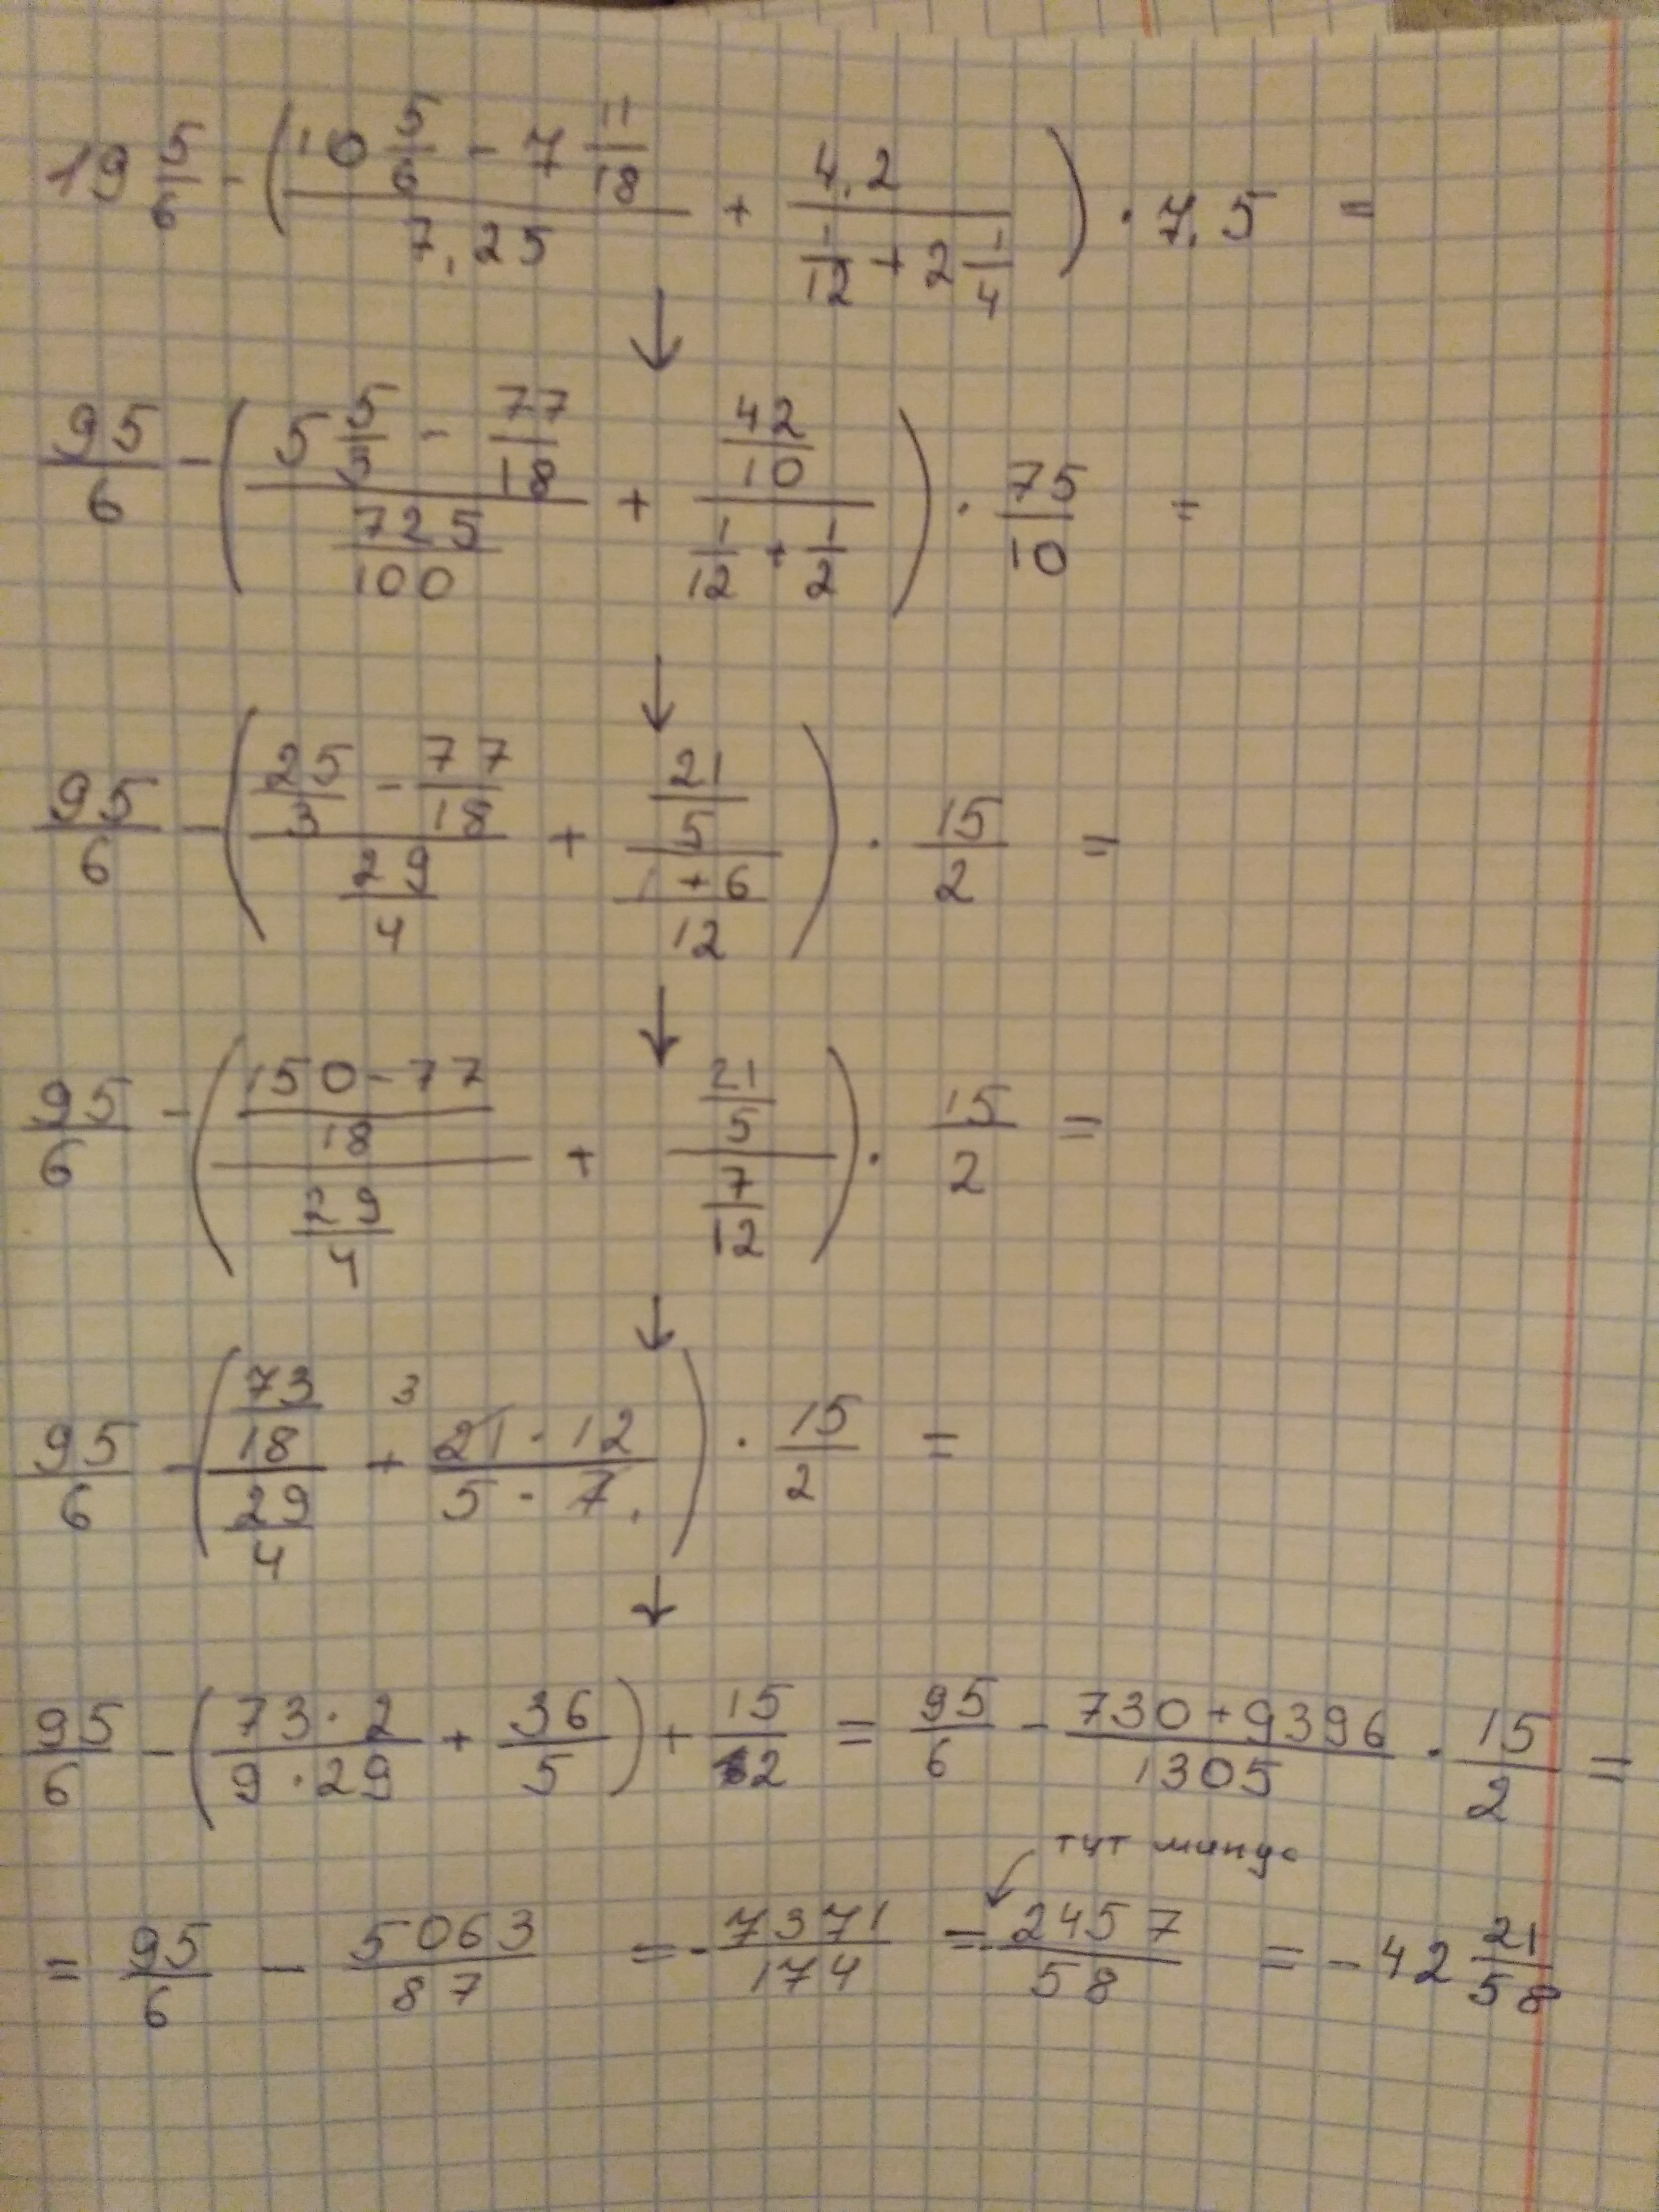 19 5/6 - ((10 5/6 - 7 11/18)/7,25 + 4,2/(1/12 + 2 1/4)) · 7,5 =
↓
95/6 - ((5 5/3 - 77/18)/(725/100) + (42/10)/(1/12 + 1/2)) · 75/10 =
↓
95/6 - ((25/3 - 77/18)/(29/4) + (21/5)/((1+6)/12)) · 15/2 =
↓
95/6 - (((150-77)/18)/(29/4) + (21/5)/(7/12)) · 15/2 =
↓
3
95/6 - ((73/18)/(29/4) + (21·12)/(5·7)) · 15/2 =
↓
95/6 - ((73·2)/(9·29) + 36/5) + 15/2 = 95/6 - (730+9396)/1305 · 15/2 =
тут минус
= 95/6 - 5063/87 = -7371/174 = -2457/58 = -42 21/58